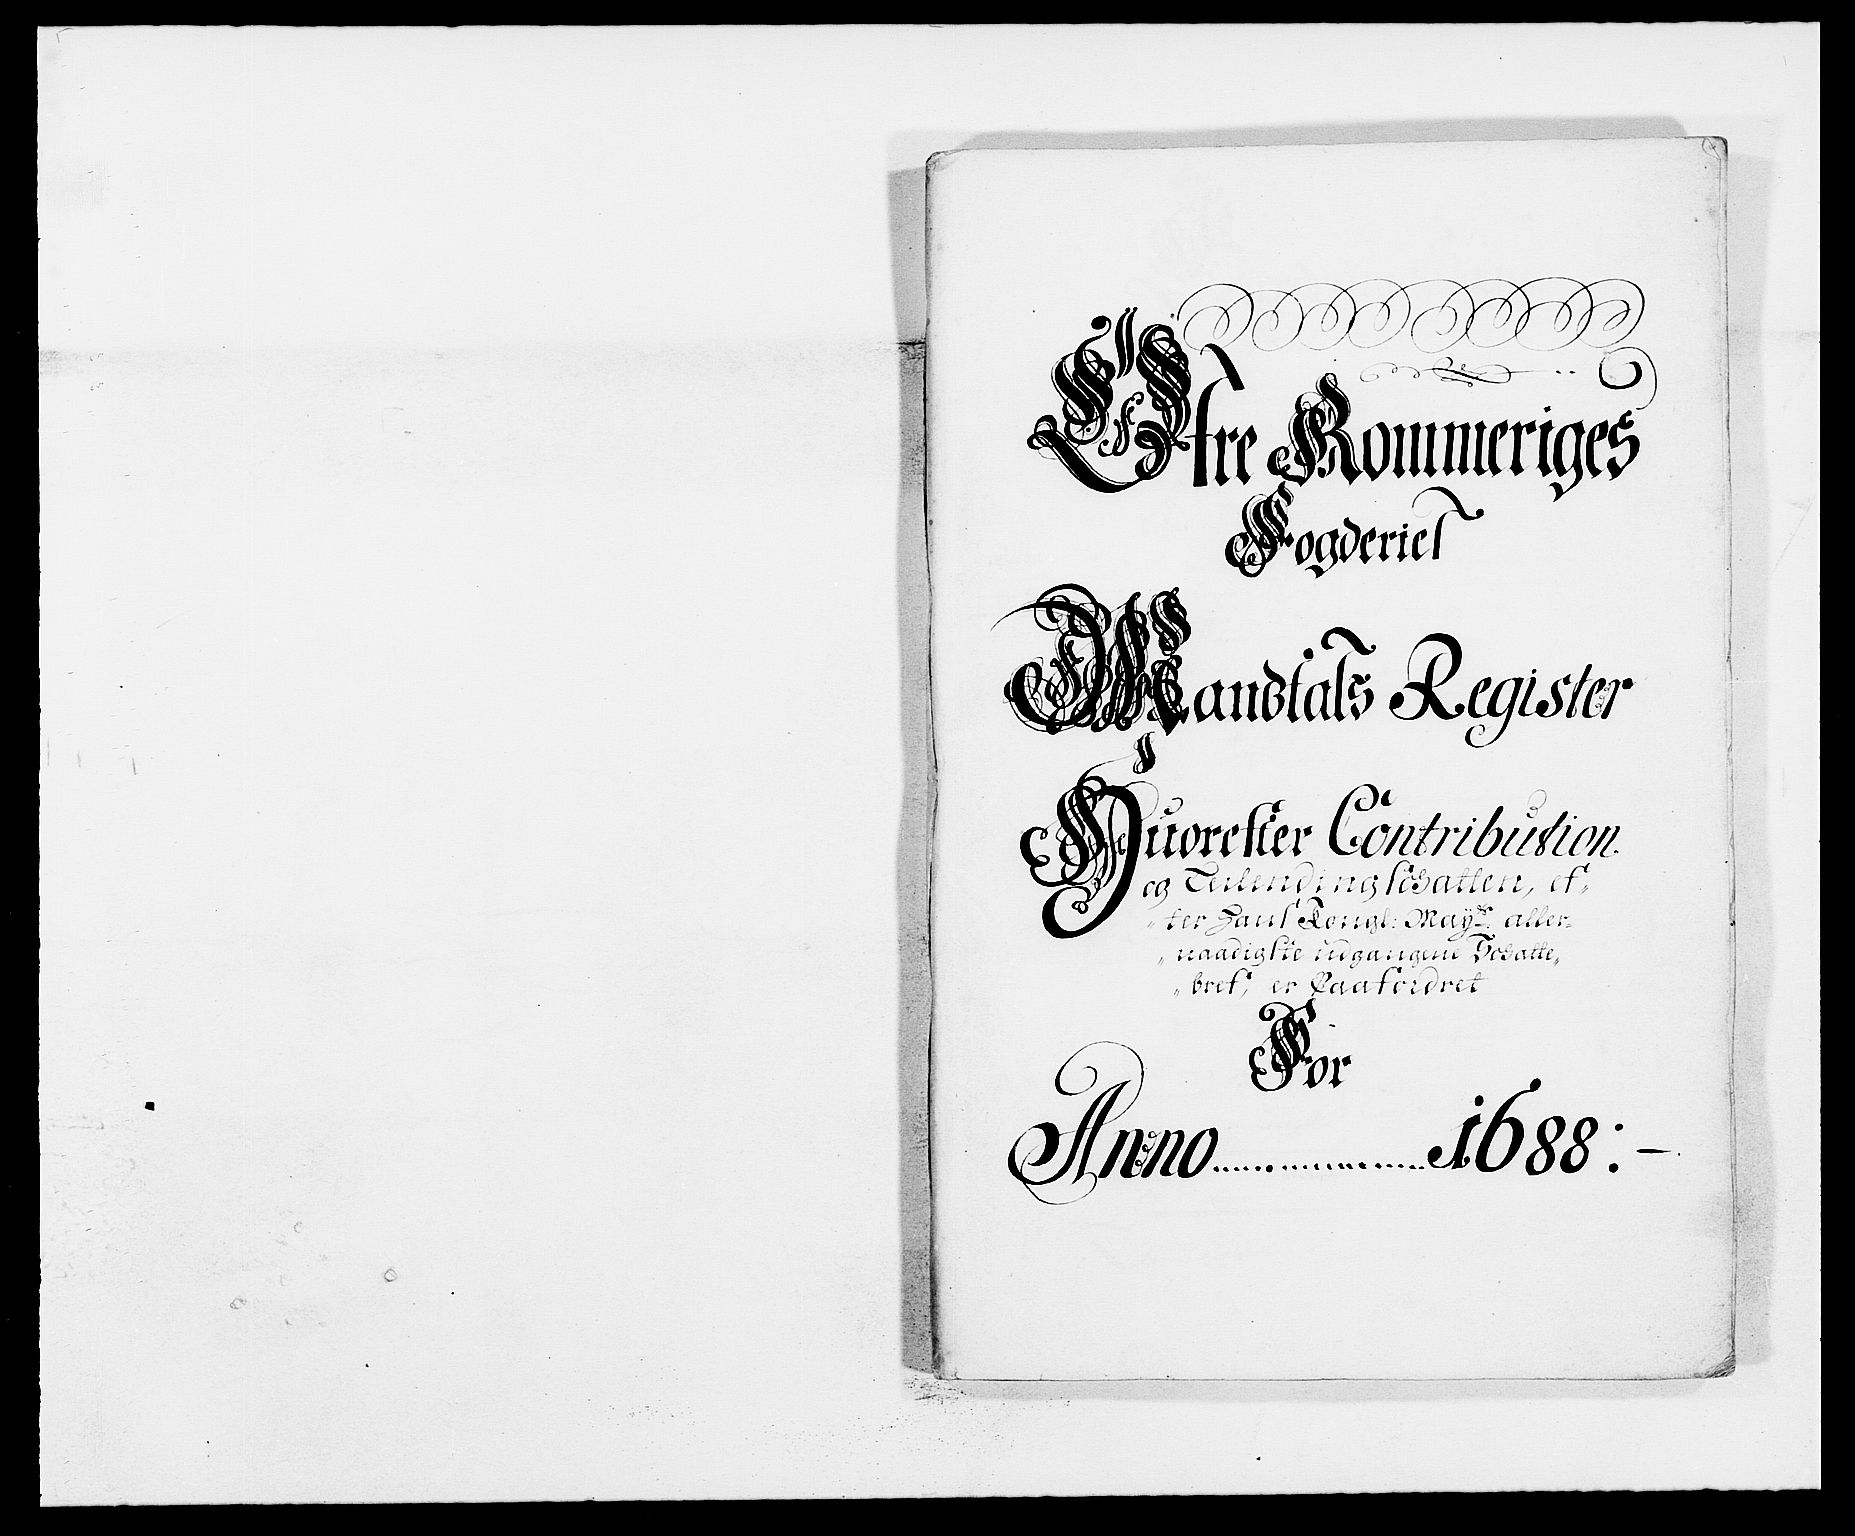 Öfre Rommeriges
Fogderies
Mandtals Register
Huorefter Contribution
og Teilending schatten, ef-
„ter Hans Kongl: Mayts: aller-
„naadigste udgangene Schatte„
„bref, er Paafordret
For
Anno 1688:-